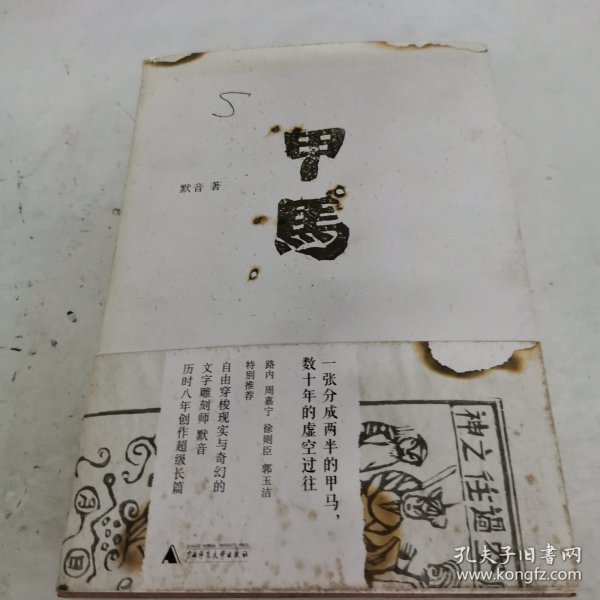 S
甲馬
默音 著
一张分成两半的甲马，
数十年的虚空过往
路内 周嘉宁 徐则臣 郭玉洁
特别推荐
自由穿梭现实与奇幻的
文字雕刻师 默音
历时八年创作超级长篇
广西师范大学出版社
神之往過
日
孔夫子旧书网
www.kongfz.com